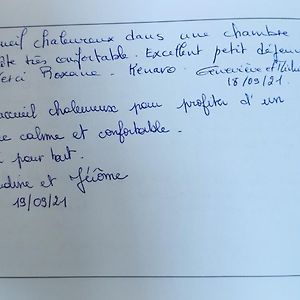 ueil chaleureux dans une chambre
très confortable. Excellent petit déjeu
erci Roxane. Kenavo. Geneviève et
18/09/21
accueil chaleureux pour profiter d'un
e calme et confortable.
i pour tout.
udine et Jérôme
19/09/21